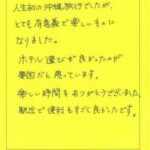 人生初の沖縄旅行でしたが、
とても有意義で楽しいものに
なりました。
ホテル選びが良かったのが
要因かと思っています。
楽しい時間をありがとうございました。
駅近で便利もすごく良かったです。